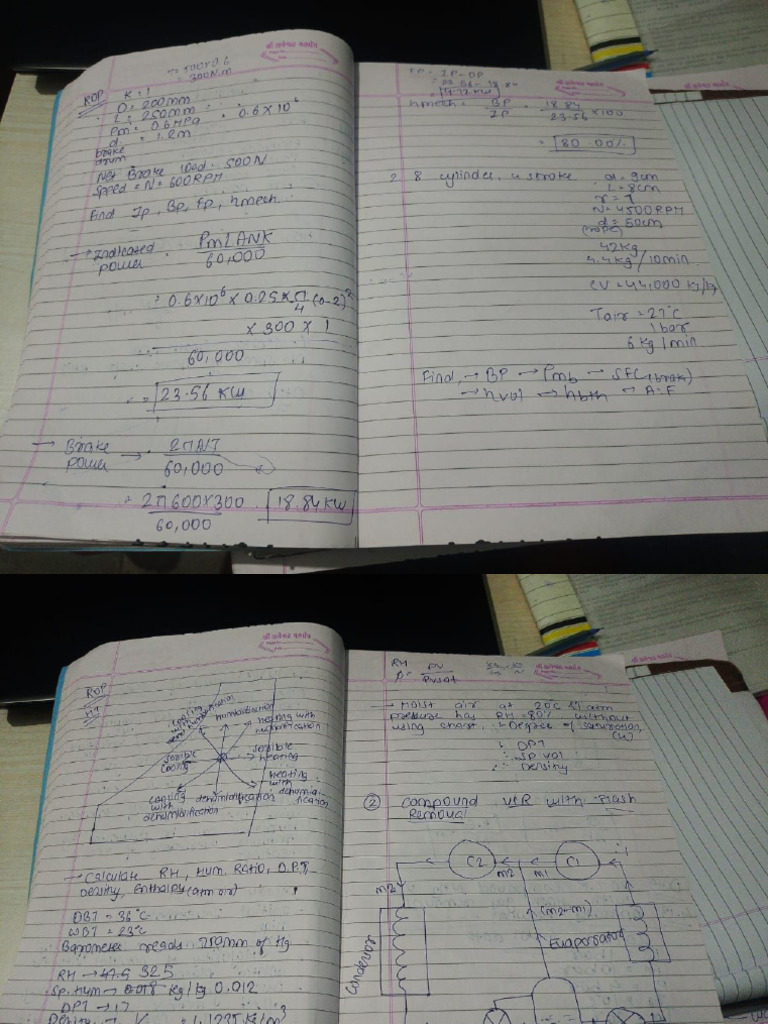 T = 500 x 0.6
= 300 N.m
RDP
K = 1
D = 200 mm
L = 250 mm
Pm = 0.6 MPa = 0.6 x 10⁶
d = 1.2 m
brake
drum
Net Brake load = 500N
Speed = N = 600 RPM
Find Ip, Bp, Fp, hmech
→ Indicated power = PmLANK / 60,000
= 0.6x10⁶ x 0.25 x π/4 (0.2)²
x 300 x 1
60,000
= 23.56 KW
→ Brake power → = 2πNT / 60,000
= 2π600x300 / 60,000 = 18.84 KW
श्री
FP = IP - BP
4.72 KW
hmech = BP / IP = 18.84 / 23.56 x 100
= 80.00%
2 8 cylinder, 4 stroke d = 9cm
L = 8cm
r = 7
N = 4500 RPM
d = 60cm
(rope)
42 Kg
4.4 Kg / 10 min
CV = 44,000 KJ/kg
Tair = 27°C
1 bar
6 Kg / min
Find, → BP → Pmb → SFC (brake)
→ hvol → hbth → A:F
RDP
HT
cooling with humidification
humidification
heating with humidification
sensible cooling
sensible heating
heating with dehumidification
cooling with dehumidification
dehumidification
→ Calculate RH, Hum. Ratio, D.P.T
Density, Enthalpy (atm air)
DBT = 36°C
WBT = 23°C
Barometer reads 750mm of Hg
RH → 47.5 32.5
Sp. Hum → 0.018 Kg/kg 0.012
DPT → 17
RH
Pv / Pvsat
→ Moist air at 20°C & 1 atm
pressure has RH = 80% without
using chart. ∴ Degree of saturation
(u)
∴ DPT
∴ Sp vol
∴ Density
② Compound VCR with Flash
Removal
C2
C1
m2
m2
m1
(m2-m1)
Condensor
Evaporator